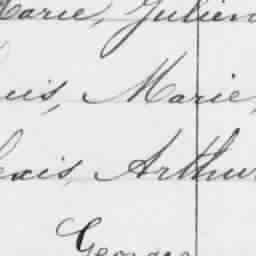 Marie, Julien
uis, Marie,
lexis, Arthur
Georges